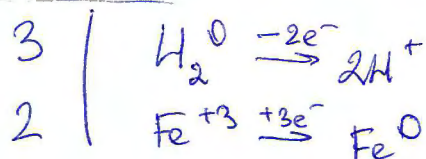 3 | H₂⁰ −2e⁻→ 2H⁺
2 | Fe⁺³ +3e⁻→ Fe⁰